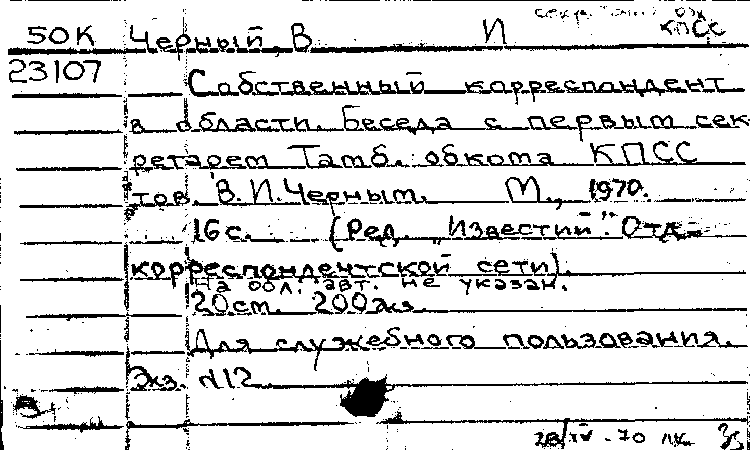 секр. обк.
КПСС
50К Черный, В И
23107
Собственный корреспондент
в области. Беседа с первым сек-
ретарем Тамб. обкома КПСС
тов. В. И. Черным. М., 1970.
16 с. (Ред. "Известий". Отд.
корреспондентской сети).
На обл. авт. не указан.
20 см. 200 экз.
Для служебного пользования.
Экз. №12
28/IV-70